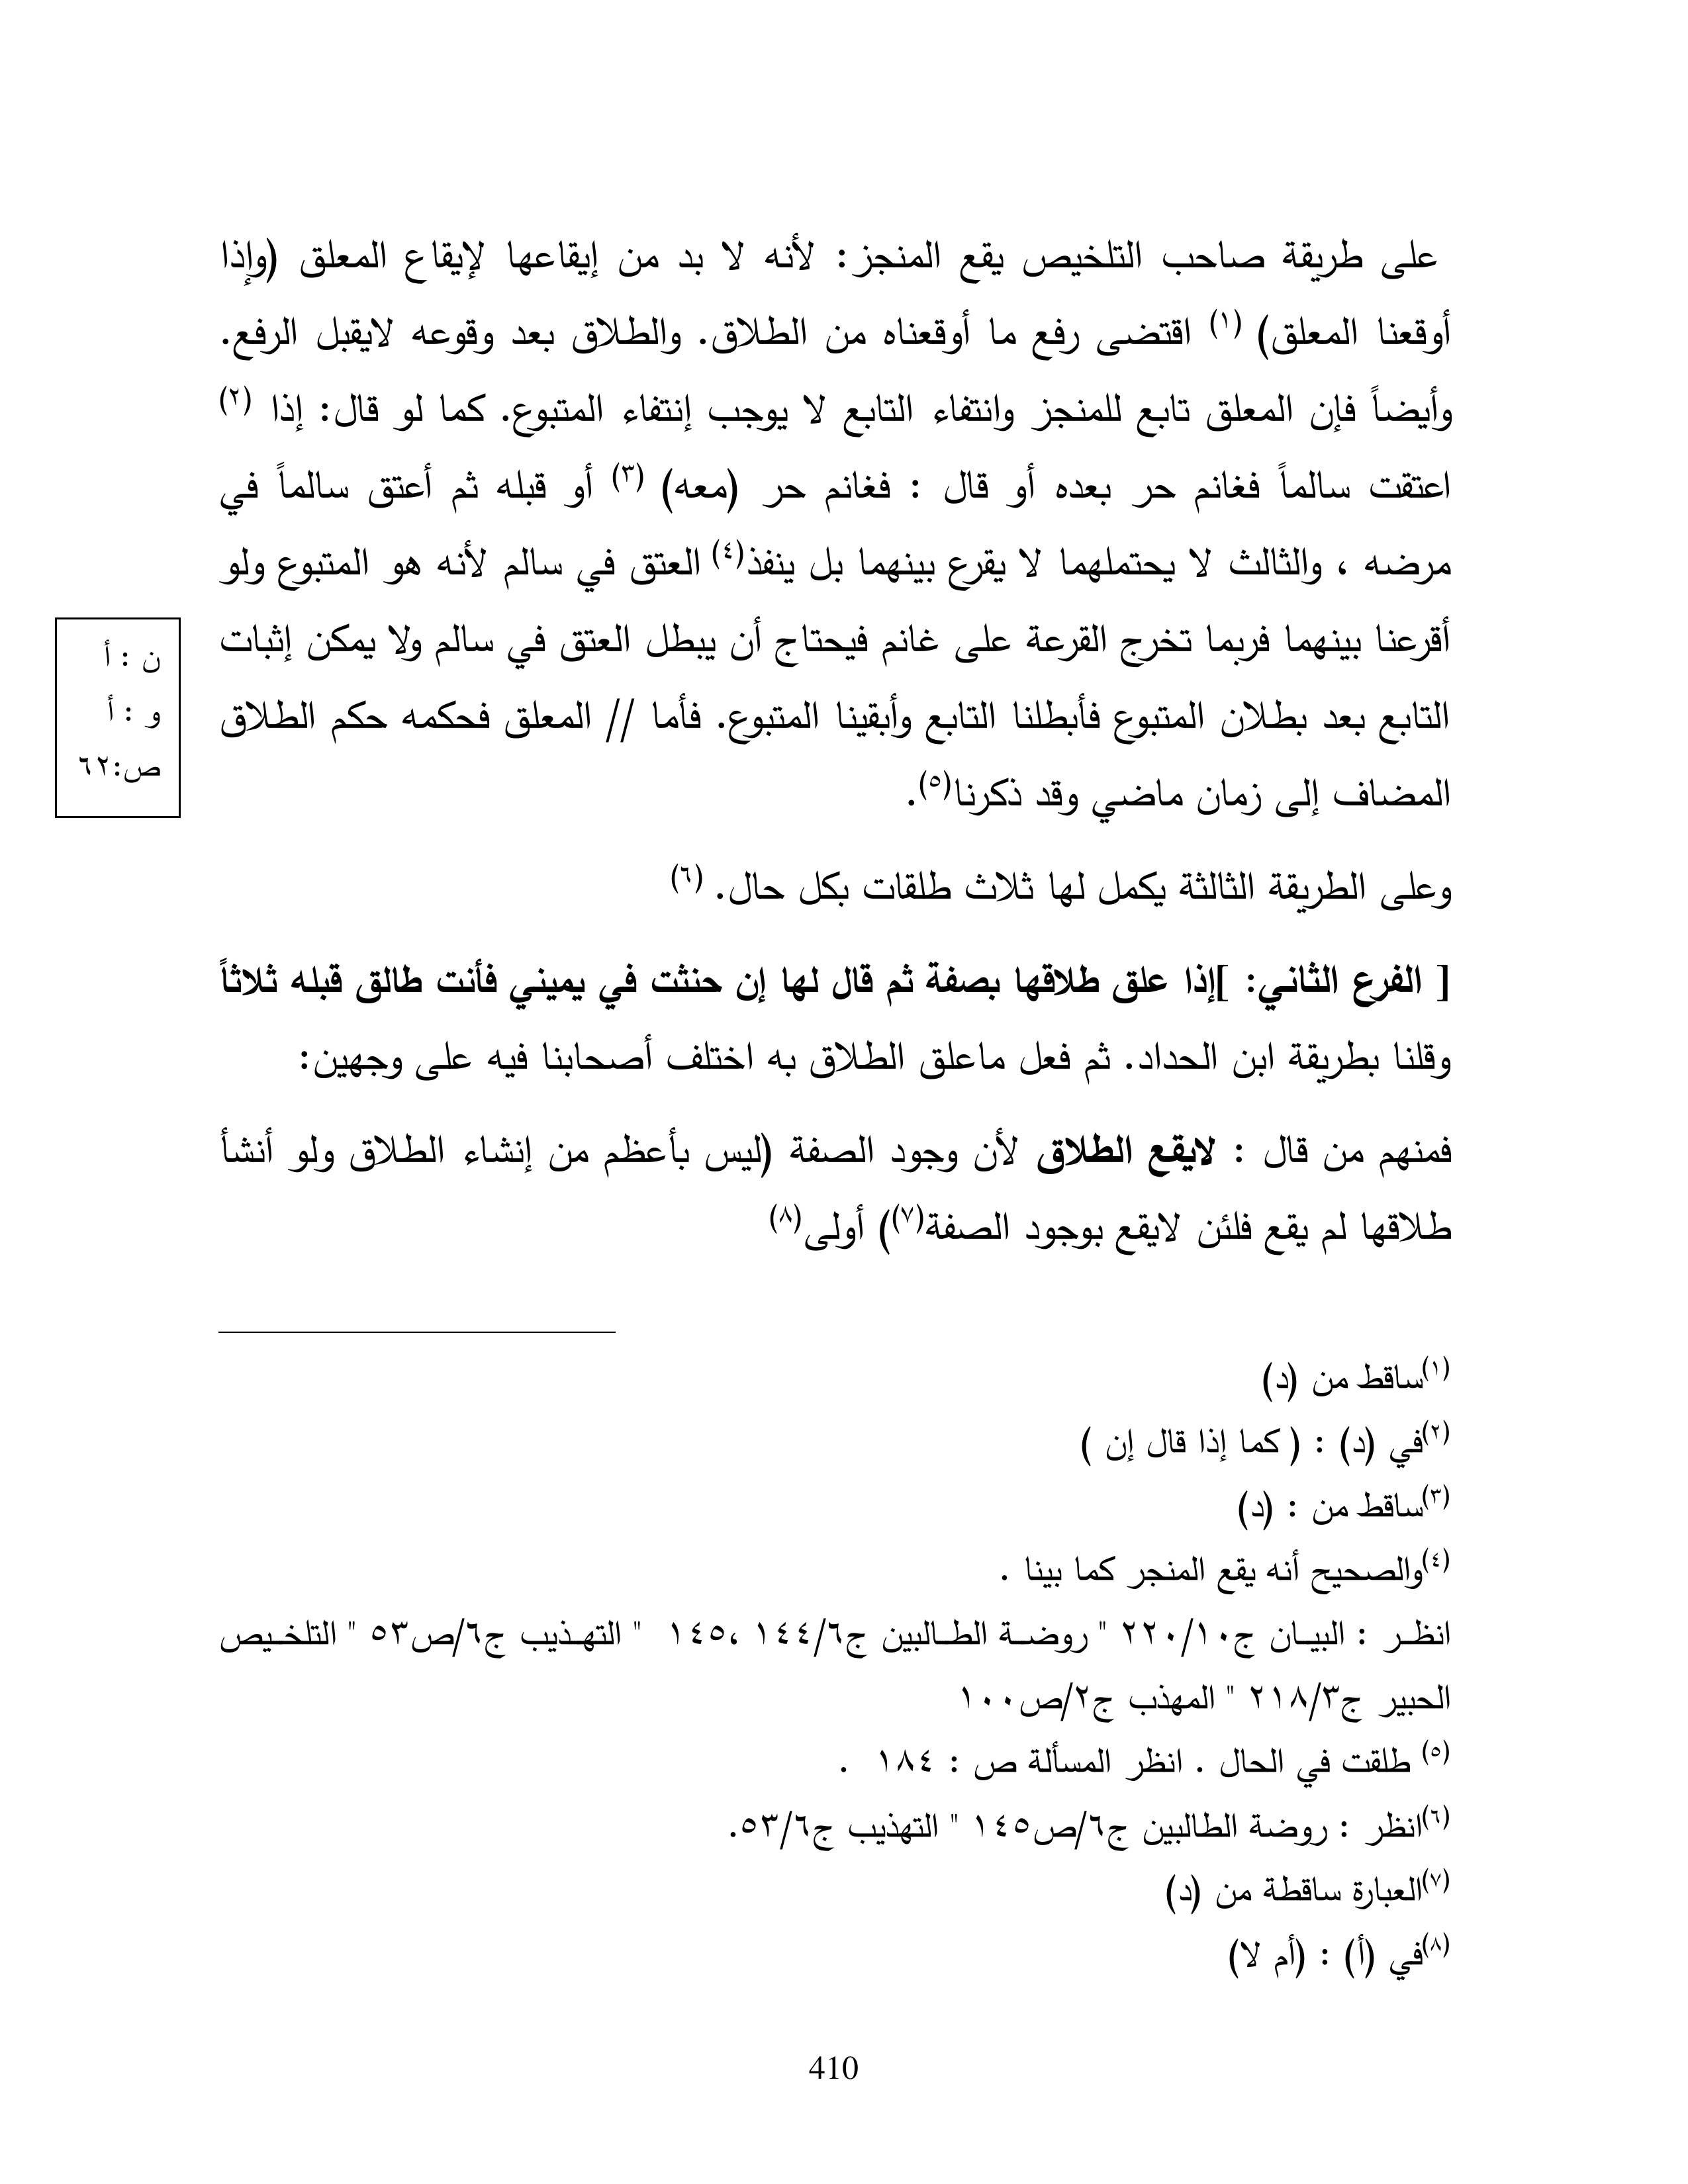 على طريقة صاحب التلخيص يقع المنجز: لأنه لا بد من إيقاعها لإيقاع المعلق (وإذا
أوقعنا المعلق) (١) اقتضى رفع ما أوقعناه من الطلاق. والطلاق بعد وقوعه لايقبل الرفع.
وأيضاً فإن المعلق تابع للمنجز وانتفاء التابع لا يوجب إنتفاء المتبوع. كما لو قال: إذا (٢)
اعتقت سالماً فغانم حر بعده أو قال : فغانم حر (معه) (٣) أو قبله ثم أعتق سالماً في
مرضه ، والثالث لا يحتملهما لا يقرع بينهما بل ينفذ(٤) العتق في سالم لأنه هو المتبوع ولو
أقرعنا بينهما فربما تخرج القرعة على غانم فيحتاج أن يبطل العتق في سالم ولا يمكن إثبات
التابع بعد بطلان المتبوع فأبطلنا التابع وأبقينا المتبوع. فأما // المعلق فحكمه حكم الطلاق
المضاف إلى زمان ماضي وقد ذكرنا(٥).
ن : أ
و : أ
ص:٦٢
وعلى الطريقة الثالثة يكمل لها ثلاث طلقات بكل حال. (٦)
[ الفرع الثاني: ]إذا علق طلاقها بصفة ثم قال لها إن حنثت في يميني فأنت طالق قبله ثلاثاً
وقلنا بطريقة ابن الحداد. ثم فعل ماعلق الطلاق به اختلف أصحابنا فيه على وجهين:
فمنهم من قال : لايقع الطلاق لأن وجود الصفة (ليس بأعظم من إنشاء الطلاق ولو أنشأ
طلاقها لم يقع فلئن لايقع بوجود الصفة(٧)) أولى(٨)
(١)ساقط من (د)
(٢)في (د) : ( كما إذا قال إن )
(٣)ساقط من : (د)
(٤)والصحيح أنه يقع المنجر كما بينا .
انظر : البيان ج١٠/٢٢٠ " روضة الطالبين ج٦/١٤٤ ،١٤٥ " التهذيب ج٦/ص٥٣ " التلخيص
الحبير ج٣/٢١٨ " المهذب ج٢/ص١٠٠
(٥) طلقت في الحال . انظر المسألة ص : ١٨٤ .
(٦)انظر : روضة الطالبين ج٦/ص١٤٥ " التهذيب ج٦/٥٣.
(٧)العبارة ساقطة من (د)
(٨)في (أ) : (أم لا)
410